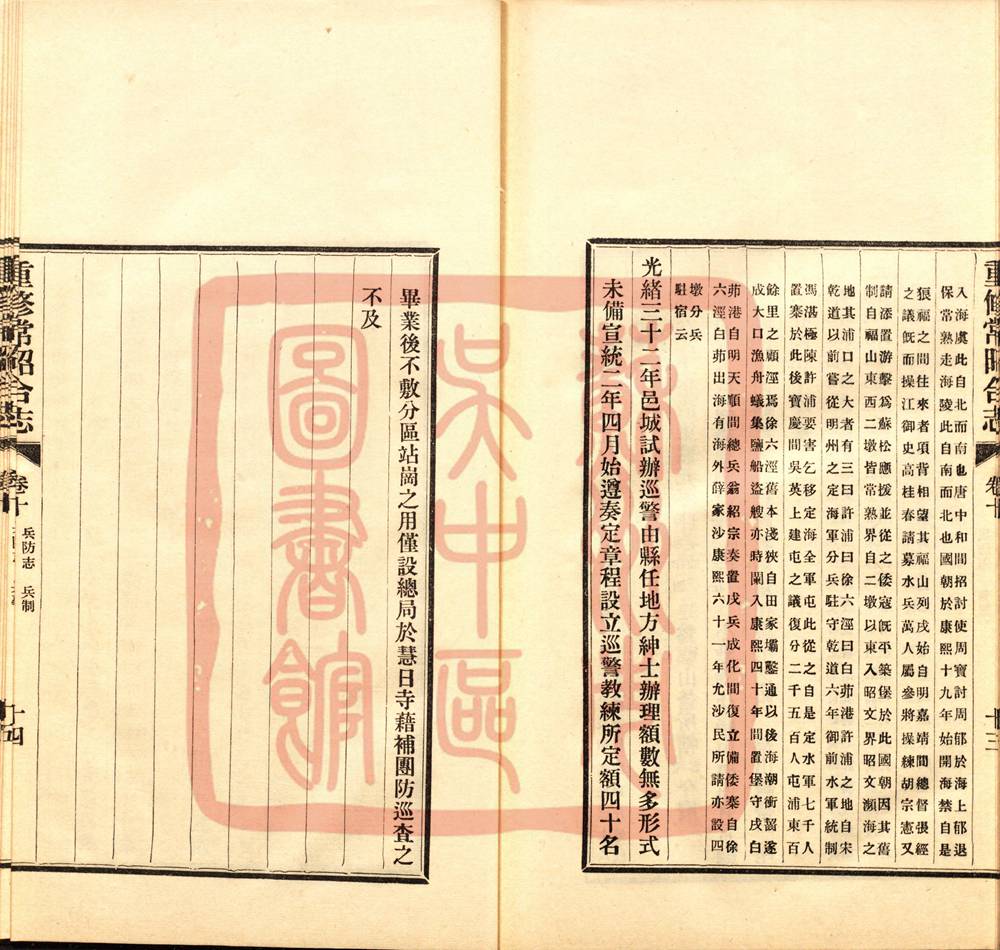 重修常昭合志 卷十 十三
入海虞此自北而南也唐中和間招討使周寶討周郁於海上郁退
保常熟走海陵此自南而北也國朝於康熙十九年始開海禁自是
狼福之間往來者項背相望其福山列戍始自明嘉靖間總督張經
之議旣而操江御史高桂春請募水兵萬人屬參將操練胡宗憲又
請添置游擊爲蘇松應援並從之倭寇旣平築堡於此國朝因其舊
制自福山東西二墩皆常熟界自二墩以東入昭文界昭文瀕海之
地其浦口之大者有三曰許浦曰徐六涇曰白茆港許浦之地自宋
乾道以前嘗從明州之定海軍分兵駐守乾道六年御前水軍統制
馮湛極陳許浦要害乞移定海全軍屯此從之自是定水軍七千人
置寨於此後寶慶間吳英上建屯之議復分二千五百人屯浦東百
餘里之顧涇焉徐六涇舊本淺狹自田家壩鑿通以後海潮衝齧遂
成大口漁舟蟻集鹽船盜艘亦時闌入康熙四十年間置堡守戍白
茆港自明天順間總兵翁紹宗奏置戍兵成化間復立備倭寨自徐
六涇白茆出海有海外薛家沙康熙六十一年允沙民所請亦設四
墩分兵
駐宿云
光緒三十二年邑城試辦巡警由縣任地方紳士辦理額數無多形式
未備宣統二年四月始遵奏定章程設立巡警教練所定額四十名
畢業後不敷分區站崗之用僅設總局於慧日寺藉補團防巡查之
不及
重修常昭合志 卷十 兵防志 兵制 十四
吳中區
圖書館